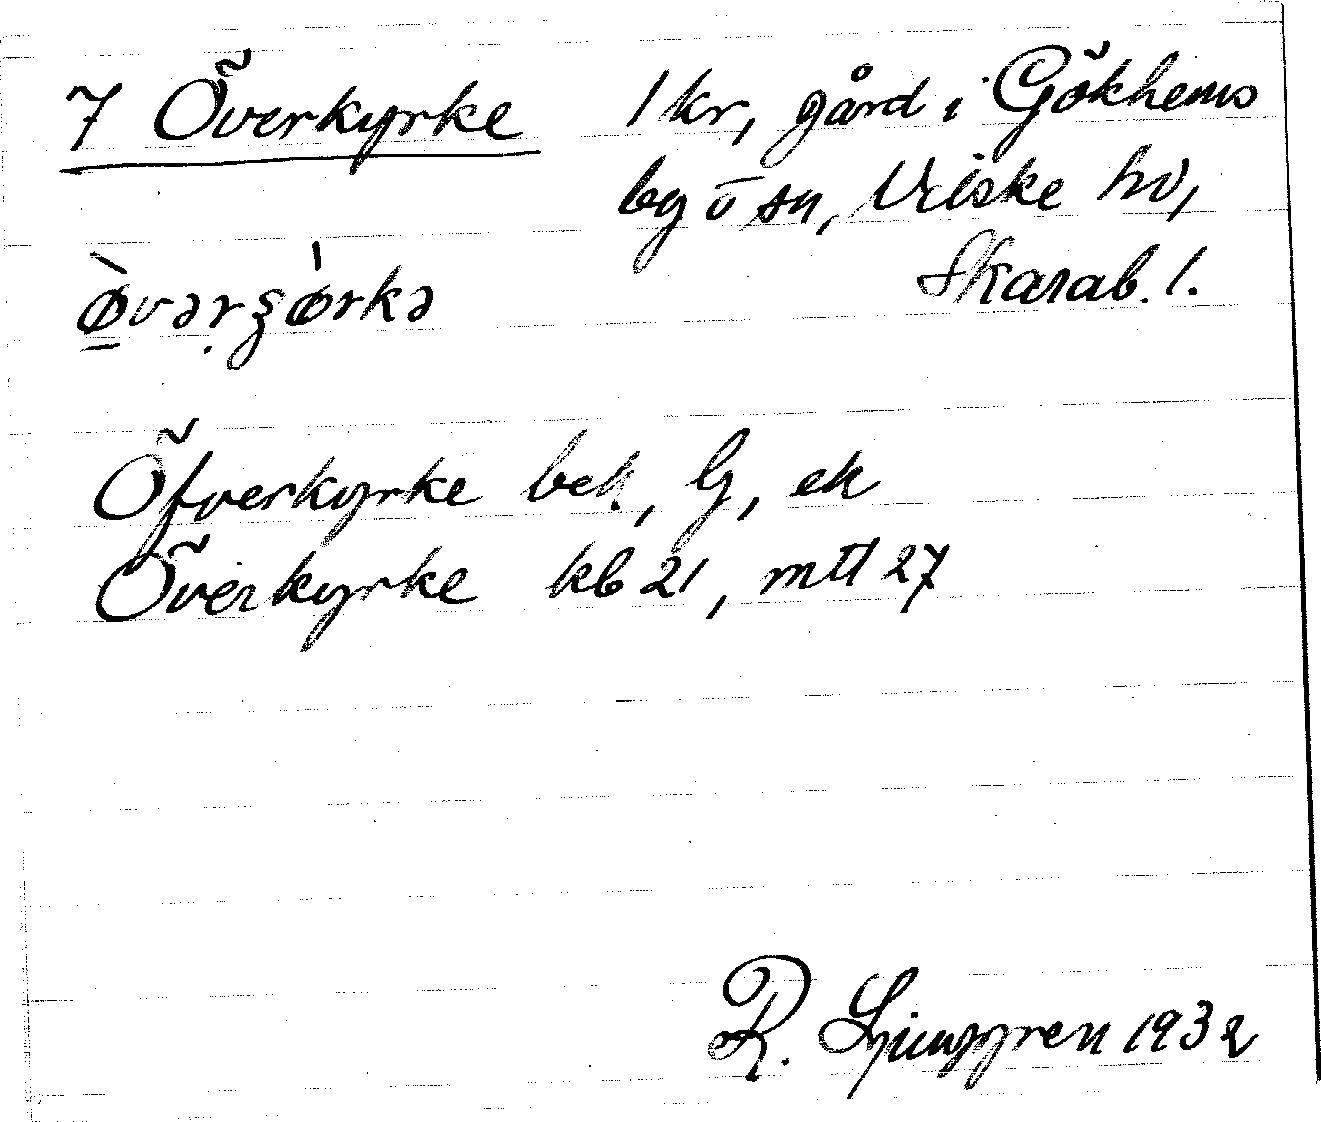 7 Överkyrke 1 kr, gård i Gökhems
by o sn, Vilske hd,
Skarab. l.
Öfverkyrke bek, G, ek
Överkyrke kb 21, mtl 27
R. Ljunggren 1932